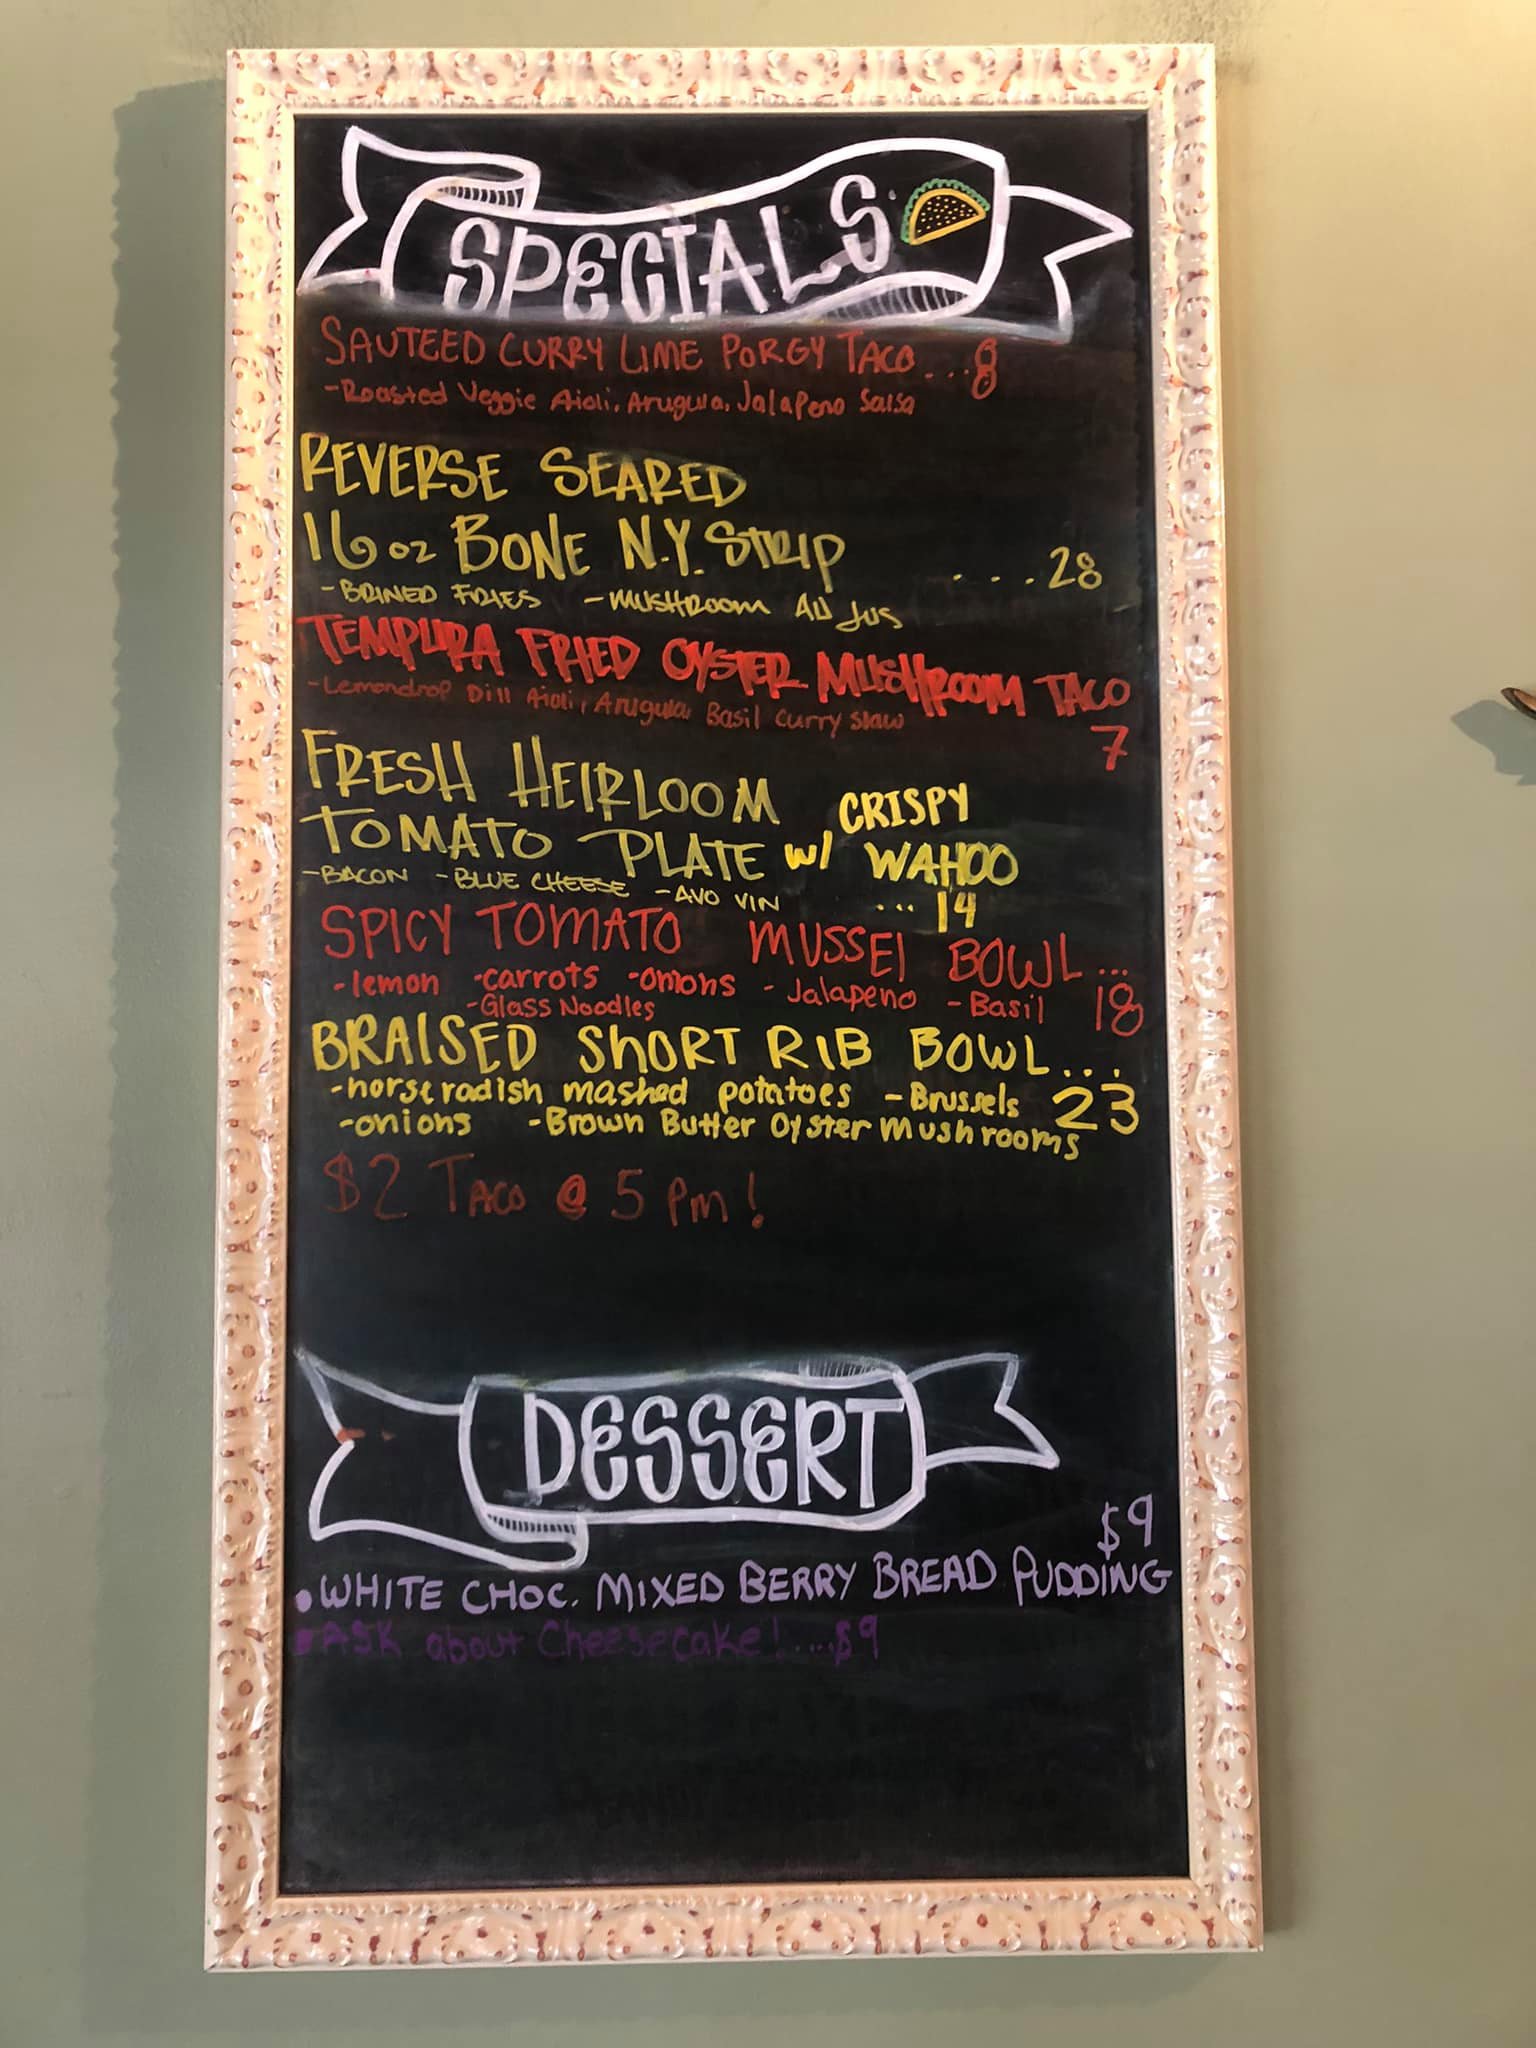 SPECIALS
SAUTEED CURRY LIME PORGY TACO...8
-Roasted Veggie Aioli, Arugula, Jalapeno Salsa
REVERSE SEARED
16oz BONE N.Y. STRIP ....28
-BRINED FRIES -MUSHROOM AU JUS
TEMPURA FRIED OYSTER MUSHROOM TACO
-Lemondrop Dill Aioli, Arugula, Basil Curry Slaw
7
FRESH HEIRLOOM
TOMATO PLATE w/ CRISPY WAHOO
-BACON -BLUE CHEESE -AVO VIN ...14
SPICY TOMATO MUSSEl BOWL...
-lemon -carrots -onions -Jalapeno -Basil 18
-Glass Noodles
BRAISED ShORT RIB BOWL...
-horseradish mashed potatoes -Brussels 23
-onions -Brown Butter Oyster Mushrooms
$2 TACO @ 5 pm!
DESSERT
$9
•WHITE CHOC. MIXED BERRY BREAD PUDDING
•ASK about Cheesecake!...$9